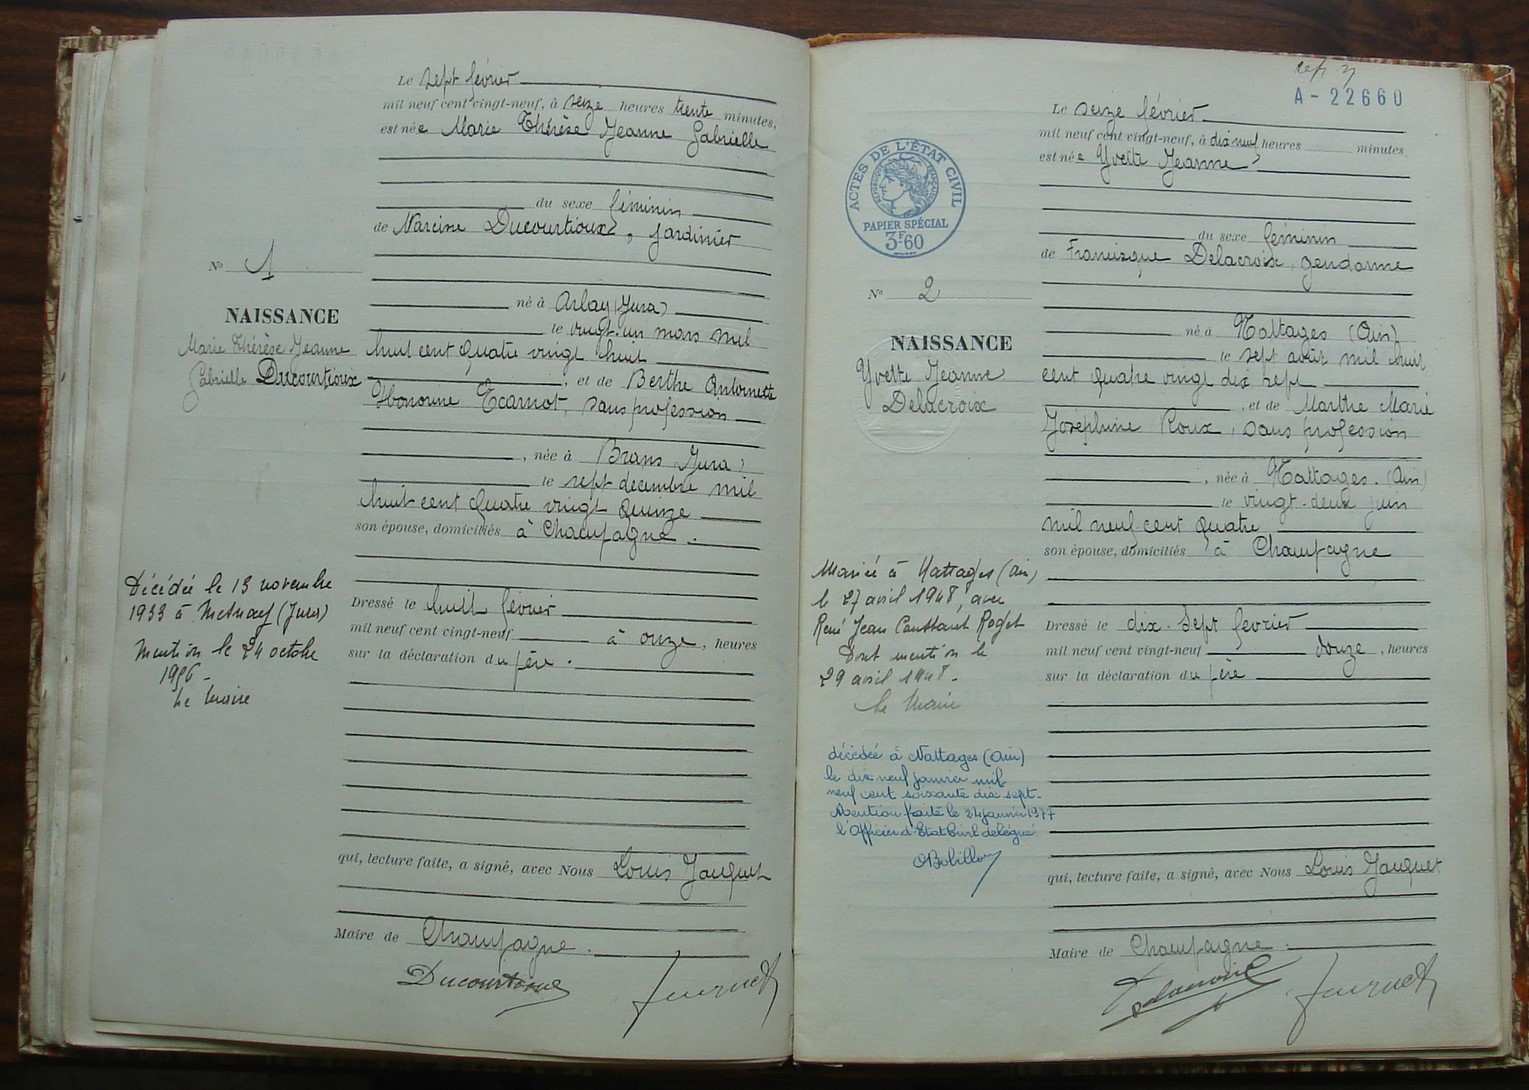 Le sept février
mil neuf cent vingt-neuf, à seize heures trente minutes,
est née Marie Thérèse Jeanne Gabrielle
du sexe féminin
de Narcisse Ducourtioux, jardinier
né à Arlay (Jura)
le vingt-un mars mil
huit cent quatre vingt huit
, et de Berthe Antoinette
Honorine Ecarnot, sans profession
, née à Brans (Jura)
le sept décembre mil
huit cent quatre vingt quinze
son épouse, domiciliés à Champagne.
Dressé le huit février
mil neuf cent vingt-neuf à onze, heures
sur la déclaration du père.
qui, lecture faite, a signé, avec Nous Louis Jauquet
Maire de Champagne.
Ducourtioux
No 1
NAISSANCE
Marie Thérèse Jeanne
Gabrielle Ducourtioux
Décédée le 13 novembre
à (Jura)
Mention le 24 octobre
Le Maire
A-22660
Le seize février
mil neuf cent vingt-neuf, à dix neuf heures minutes
est née Yvette Jeanne
du sexe féminin
de Francisque Delacroix, gendarme
né à Nattages (Ain)
le sept août mil huit
cent quatre vingt dix sept
, et de Marthe Marie
Joséphine Roux, sans profession
, née à Nattages (Ain)
le vingt-deux juin
mil neuf cent quatre
son épouse, domiciliés à Champagne
Dressé le dix-sept février
mil neuf cent vingt-neuf douze, heures
sur la déclaration du père
qui, lecture faite, a signé, avec Nous Louis Jauquet
Maire de Champagne.
Delacroix
ACTES DE L'ÉTAT CIVIL
PAPIER SPÉCIAL
3F60
No 2
NAISSANCE
Yvette Jeanne
Delacroix
Mariée à Nattages (Ain)
le 27 avril 1948, avec
René Jean Constant Roget
Dont mention le
29 avril 1948.
Le Maire
décédée à Nattages (Ain)
le dix neuf janvier mil
neuf cent soixante dix sept.
Mention faite le 24 janvier 1977
l'Officier d'Etat Civil délégué